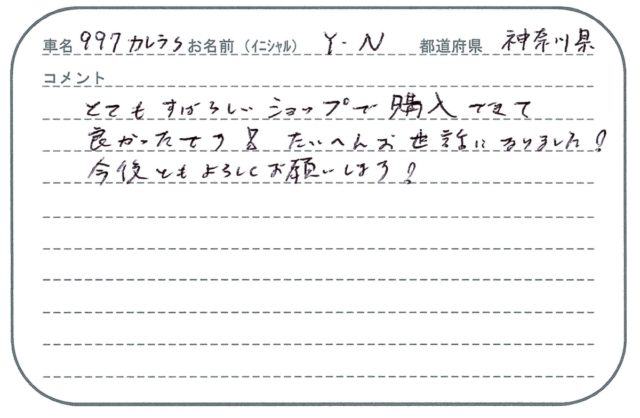 車名 997 カレラS お名前（ｲﾆｼｬﾙ） Y・N 都道府県 神奈川県
コメント
とてもすばらしいショップで購入できて
良かったです！！ たいへんお世話になりました！
今後ともよろしくお願いします！